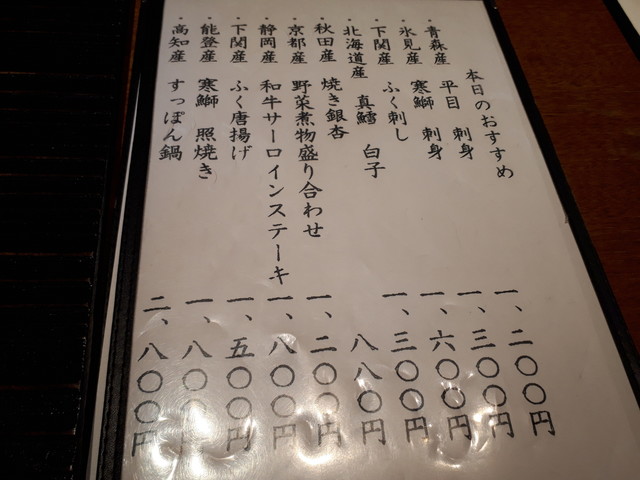 本日のおすすめ
・青森産 平目 刺身 一、二〇〇円
・氷見産 寒鰤 刺身 一、三〇〇円
・下関産 ふく刺し 一、六〇〇円
・北海道産 真鱈 白子 一、三〇〇円
・秋田産 焼き銀杏 八八〇円
・京都産 野菜煮物盛り合わせ 一、二〇〇円
・静岡産 和牛サーロインステーキ 一、八〇〇円
・下関産 ふく唐揚げ 一、五〇〇円
・能登産 寒鰤 照焼き 一、八〇〇円
・高知産 すっぽん鍋 二、八〇〇円